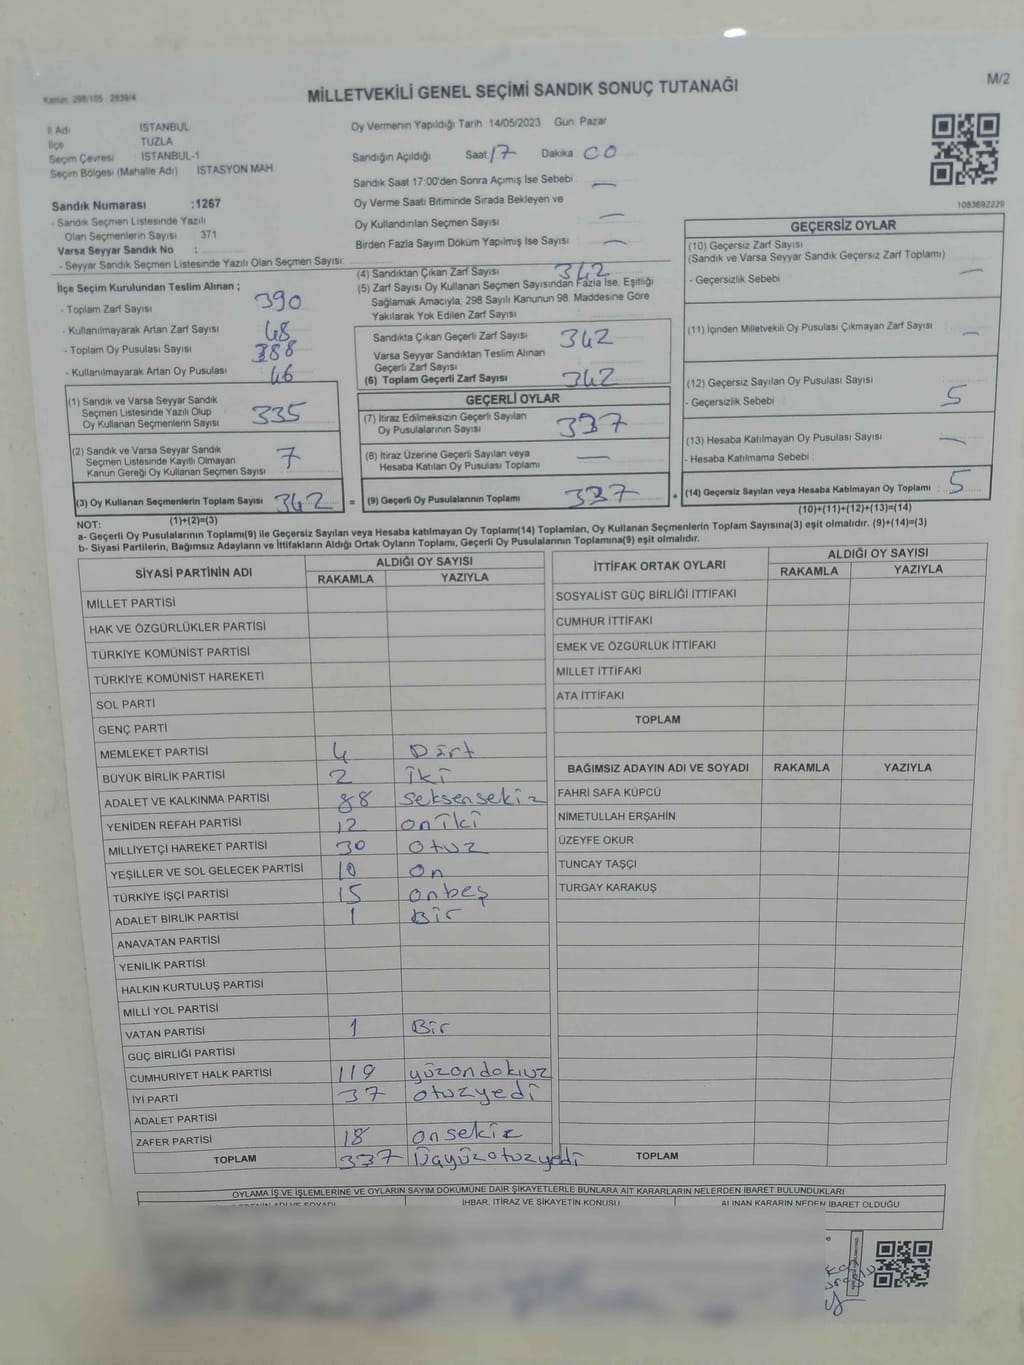 M/2
Kanun: 298/105 2839/4
MİLLETVEKİLİ GENEL SEÇİMİ SANDIK SONUÇ TUTANAĞI
İl Adı İSTANBUL
İlçe TUZLA
Seçim Çevresi İSTANBUL-1
Seçim Bölgesi (Mahalle Adı) İSTASYON MAH
Sandık Numarası :1267
- Sandık Seçmen Listesinde Yazılı
Olan Seçmenlerin Sayısı 371
Varsa Seyyar Sandık No :
- Seyyar Sandık Seçmen Listesinde Yazılı Olan Seçmen Sayısı:
Oy Vermenin Yapıldığı Tarih 14/05/2023 Gün: Pazar
Sandığın Açıldığı Saat 17 Dakika 00
Sandık Saat 17:00'den Sonra Açımış İse Sebebi —
Oy Verme Saati Bitiminde Sırada Bekleyen ve
Oy Kullandırılan Seçmen Sayısı —
Birden Fazla Sayım Döküm Yapılmış İse Sayısı —
1083692229
İlçe Seçim Kurulundan Teslim Alınan ;
- Toplam Zarf Sayısı 390
- Kullanılmayarak Artan Zarf Sayısı 48
- Toplam Oy Pusulası Sayısı 388
- Kullanılmayarak Artan Oy Pusulası 46
(1) Sandık ve Varsa Seyyar Sandık
Seçmen Listesinde Yazılı Olup
Oy Kullanan Seçmenlerin Sayısı 335
(2) Sandık ve Varsa Seyyar Sandık
Seçmen Listesinde Kayıtlı Olmayan
Kanun Gereği Oy Kullanan Seçmen Sayısı 7
(3) Oy Kullanan Seçmenlerin Toplam Sayısı 342 =
(1)+(2)=(3)
(4) Sandıktan Çıkan Zarf Sayısı 342
(5) Zarf Sayısı Oy Kullanan Seçmen Sayısından Fazla İse, Eşitliği
Sağlamak Amacıyla, 298 Sayılı Kanunun 98. Maddesine Göre
Yakılarak Yok Edilen Zarf Sayısı
Sandıkta Çıkan Geçerli Zarf Sayısı 342
Varsa Seyyar Sandıktan Teslim Alınan
Geçerli Zarf Sayısı
(6) Toplam Geçerli Zarf Sayısı 342
GEÇERLİ OYLAR
(7) İtiraz Edilmeksizin Geçerli Sayılan
Oy Pusulalarının Sayısı 337
(8) İtiraz Üzerine Geçerli Sayılan veya
Hesaba Katılan Oy Pusulası Toplamı —
(9) Geçerli Oy Pusulalarının Toplamı 337 +
GEÇERSİZ OYLAR
(10) Geçersiz Zarf Sayısı
(Sandık ve Varsa Seyyar Sandık Geçersiz Zarf Toplamı)
- Geçersizlik Sebebi —
(11) İçinden Milletvekili Oy Pusulası Çıkmayan Zarf Sayısı —
(12) Geçersiz Sayılan Oy Pusulası Sayısı
- Geçersizlik Sebebi 5
(13) Hesaba Katılmayan Oy Pusulası Sayısı —
- Hesaba Katılmama Sebebi :
(14) Geçersiz Sayılan veya Hesaba Katılmayan Oy Toplamı 5
(10)+(11)+(12)+(13)=(14)
NOT:
a- Geçerli Oy Pusulalarının Toplamı(9) ile Geçersiz Sayılan veya Hesaba katılmayan Oy Toplamı(14) Toplamları, Oy Kullanan Seçmenlerin Toplam Sayısına(3) eşit olmalıdır. (9)+(14)=(3)
b- Siyasi Partilerin, Bağımsız Adayların ve İttifakların Aldığı Ortak Oyların Toplamı, Geçerli Oy Pusulalarının Toplamına(9) eşit olmalıdır.
SİYASİ PARTİNİN ADI ALDIĞI OY SAYISI
RAKAMLA YAZIYLA
MİLLET PARTİSİ
HAK VE ÖZGÜRLÜKLER PARTİSİ
TÜRKİYE KOMÜNİST PARTİSİ
TÜRKİYE KOMÜNİST HAREKETİ
SOL PARTİ
GENÇ PARTİ
MEMLEKET PARTİSİ 4 Dört
BÜYÜK BİRLİK PARTİSİ 2 iki
ADALET VE KALKINMA PARTİSİ 88 seksensekiz
YENİDEN REFAH PARTİSİ 12 oniki
MİLLİYETÇİ HAREKET PARTİSİ 30 otuz
YEŞİLLER VE SOL GELECEK PARTİSİ 10 on
TÜRKİYE İŞÇİ PARTİSİ 15 onbeş
ADALET BİRLİK PARTİSİ 1 Bir
ANAVATAN PARTİSİ
YENİLİK PARTİSİ
HALKIN KURTULUŞ PARTİSİ
MİLLİ YOL PARTİSİ
VATAN PARTİSİ 1 Bir
GÜÇ BİRLİĞİ PARTİSİ
CUMHURİYET HALK PARTİSİ 119 yüzondokuz
İYİ PARTİ 37 otuzyedi
ADALET PARTİSİ
ZAFER PARTİSİ 18 onsekiz
TOPLAM 337 Üçyüzotuzyedi
İTTİFAK ORTAK OYLARI ALDIĞI OY SAYISI
RAKAMLA YAZIYLA
SOSYALİST GÜÇ BİRLİĞİ İTTİFAKI
CUMHUR İTTİFAKI
EMEK VE ÖZGÜRLÜK İTTİFAKI
MİLLET İTTİFAKI
ATA İTTİFAKI
TOPLAM
BAĞIMSIZ ADAYIN ADI VE SOYADI RAKAMLA YAZIYLA
FAHRİ SAFA KÜPCÜ
NİMETULLAH ERŞAHİN
ÜZEYFE OKUR
TUNCAY TAŞÇI
TURGAY KARAKUŞ
TOPLAM
OYLAMA İŞ VE İŞLEMLERİNE VE OYLARIN SAYIM DÖKÜMÜNE DAİR ŞİKAYETLERLE BUNLARA AİT KARARLARIN NELERDEN İBARET BULUNDUKLARI
İHBAR, İTİRAZ VE ŞİKAYETİN KONUSU ALINAN KARARIN NEDEN İBARET OLDUĞU